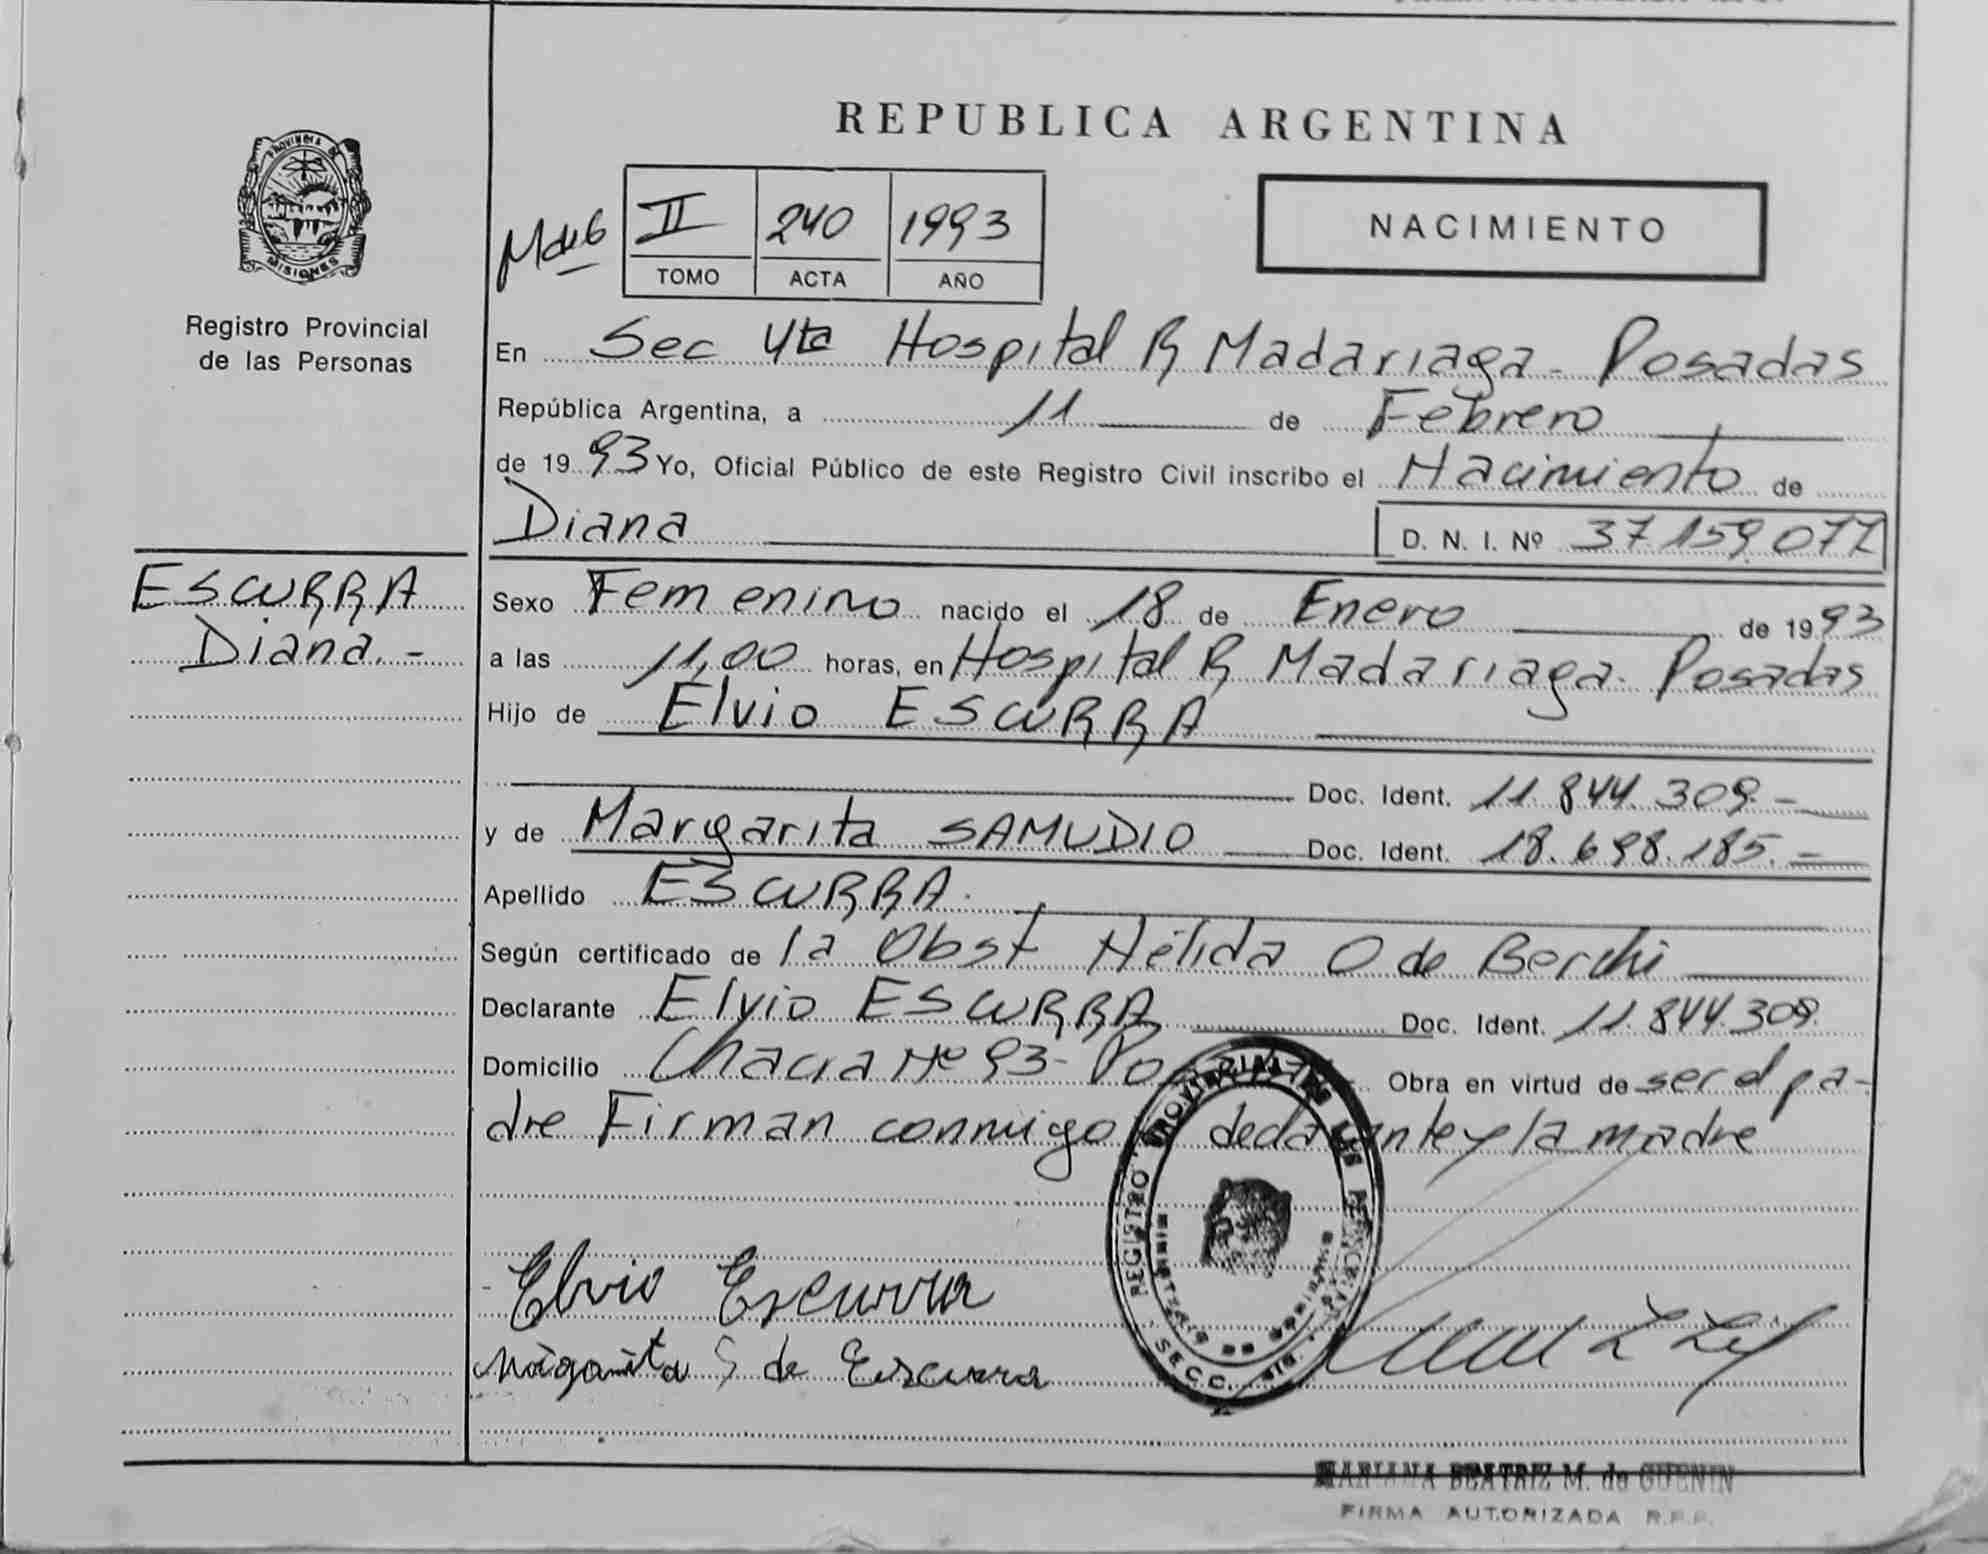 REPUBLICA ARGENTINA
PROVINCIA DE
MISIONES
Registro Provincial
de las Personas
II 240 1993
TOMO ACTA AÑO
NACIMIENTO
En Sec 4ta Hospital R Madariaga - Posadas
República Argentina, a 11 de Febrero
de 1993 Yo, Oficial Público de este Registro Civil inscribo el Nacimiento de
Diana D. N. I. Nº 37.159.077
ESCURRA
Diana.-
Sexo Femenino nacido el 18 de Enero de 1993
a las 11,00 horas, en Hospital R Madariaga - Posadas
Hijo de Elvio ESCURRA
Doc. Ident. 11.844.309.-
y de Margarita SAMUDIO Doc. Ident. 18.698.185.-
Apellido ESCURRA.
Según certificado de la Obst Nélida O de Berchi
Declarante Elvio ESCURRA Doc. Ident. 11.844.309.
Domicilio Chacra Nº 93 - Posadas Obra en virtud de ser el pa-
dre Firman conmigo declarante y la madre
Elvio Escurra
Margarita S de Escurra
REGISTRO PROVINCIAL DE LAS PERSONAS
SECC.
MARIANA BEATRIZ M. de GUENIN
FIRMA AUTORIZADA R.P.P.